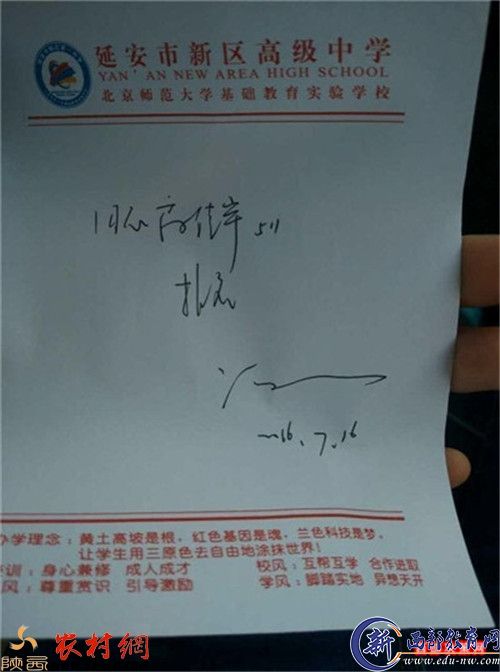 延安市新区高级中学
YAN'AN NEW AREA HIGH SCHOOL
北京师范大学基础教育实验学校
同意
511
2016.7.16
办学理念：黄土高坡是根，红色基因是魂，兰色科技是梦。
让学生用三原色去自由地涂抹世界！
训：身心兼修 成人成才
校风：互帮互学 合作进取
风：尊重赏识 引导激励
学风：脚踏实地 异想天开
陕西
农村網
新
西部教育网
www.edu-nw.com